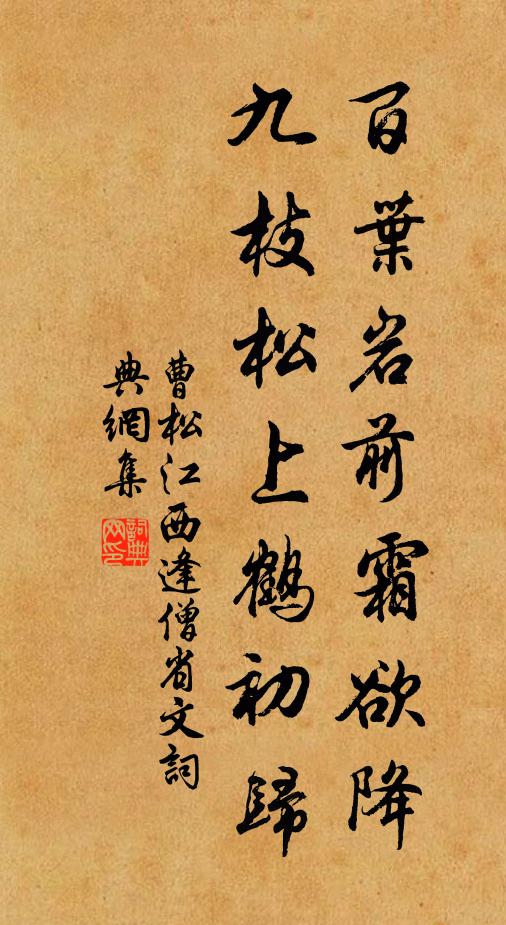 百葉岩前霜欲降
九枝松上鶴初歸
曹松江西逢僧省文詞
典網集
詞典網印